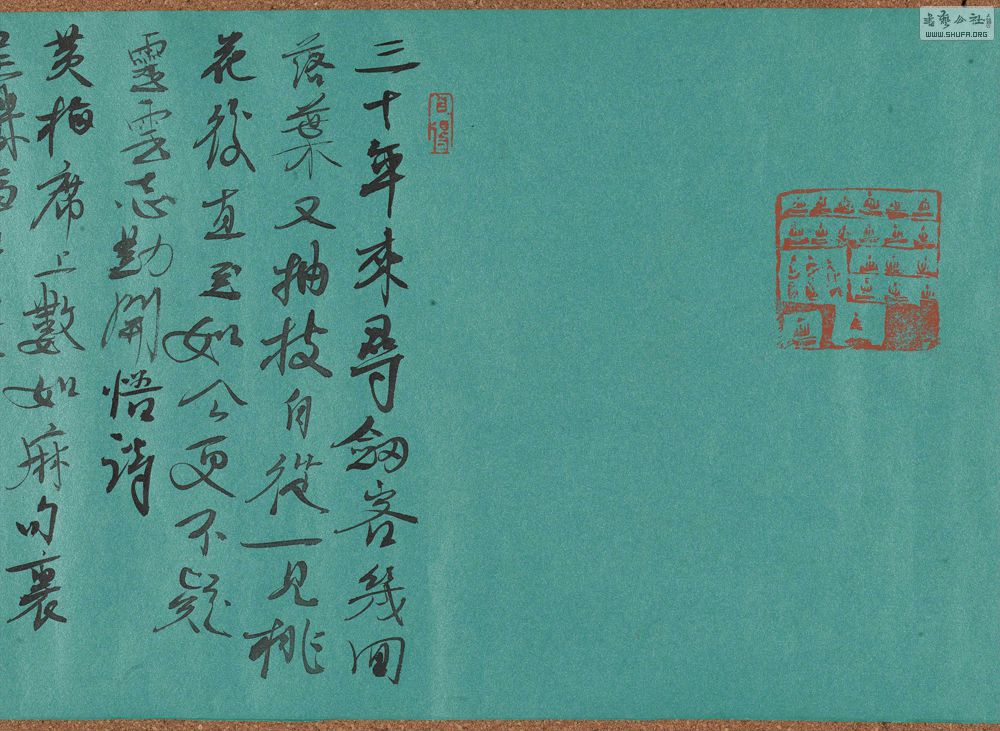 三十年来尋劔客幾回
落葉又抽枝自從一見桃
花後直至如今更不疑
靈雲志勤開悟詩
黄梅席上數如麻句裏
書藝公社
WWW.SHUFA.ORG